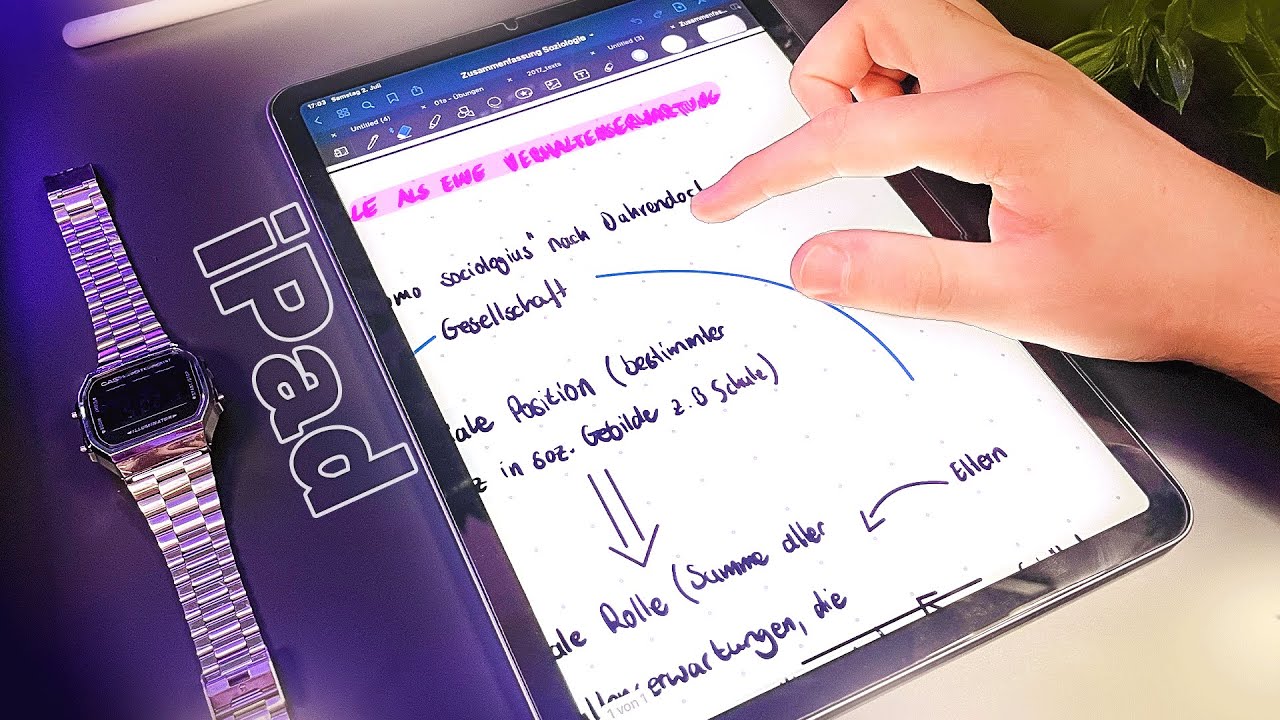 17:03 Samstag 2. Juli
Zusammenfassung Soziologie
Untitled (4)
01a - Übungen
2017_texts
Untitled (3)
Zusammenfas...
LE ALS EINE VERHALTENSERWARTUNG
omo sociologius" nach Dahrendorf
Gesellschaft
ale Position (bestimmter
z in soz. Gebilde z.B Schule)
Eltern
ale Rolle (Summe aller
erwartungen, die
1 von 1
iPad
CASIO
ILLUMINATOR